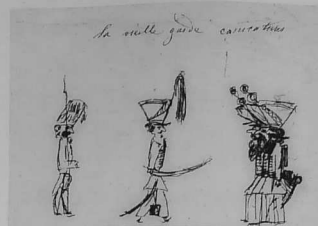 la vieille garde caricatures